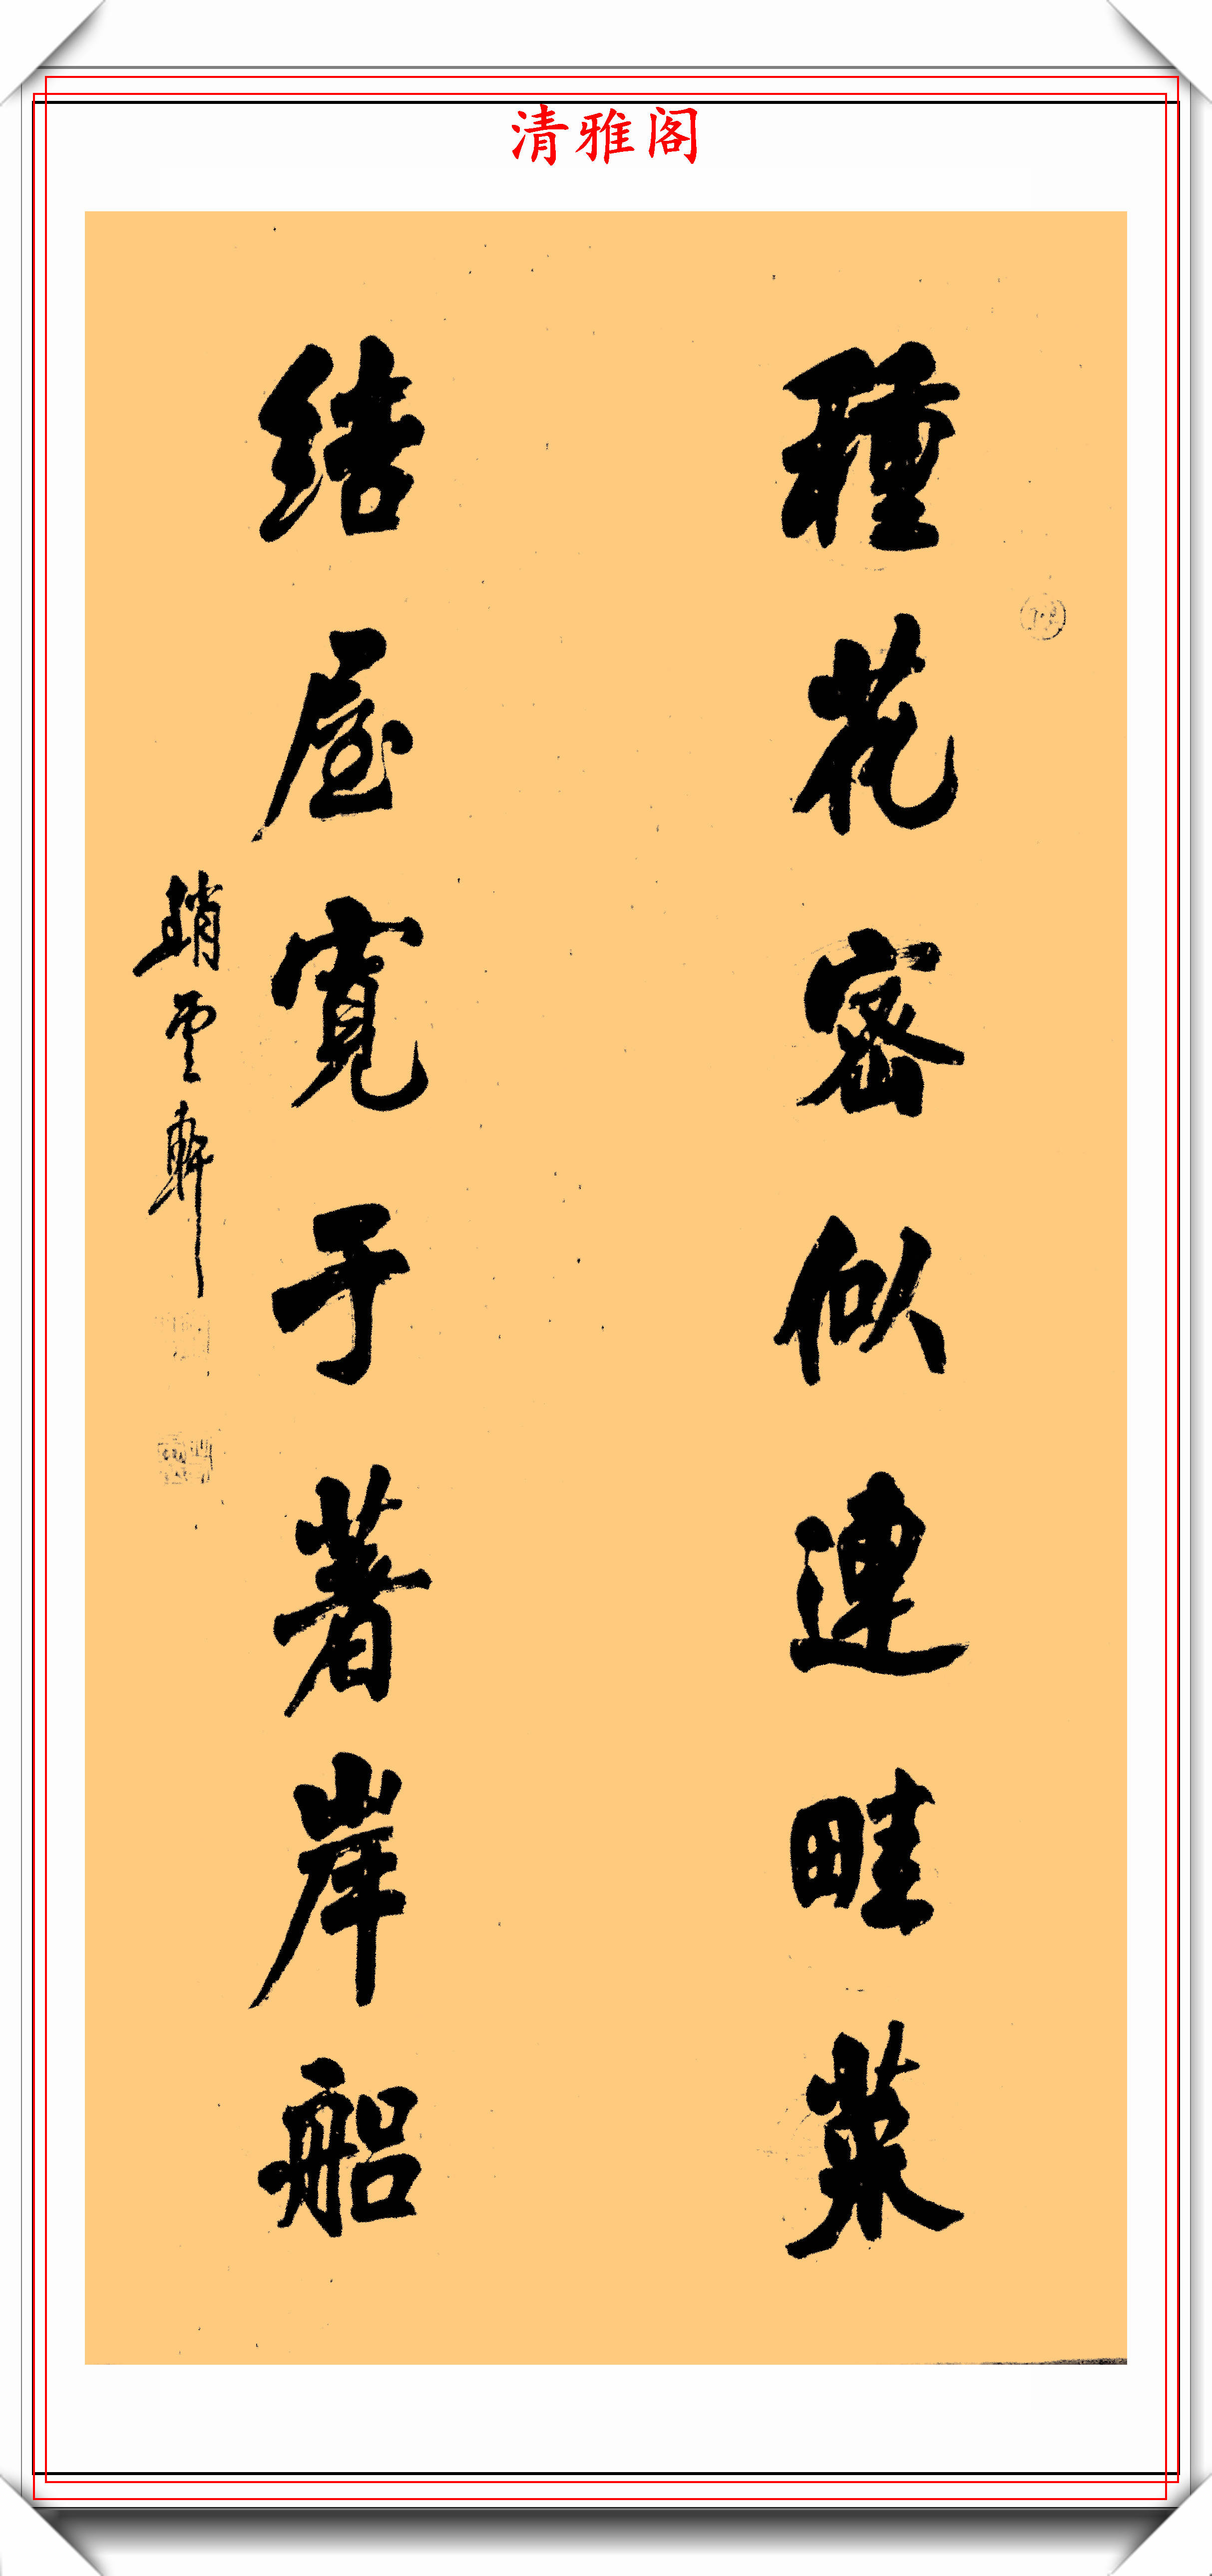 清雅阁
種花密似連畦菜
结屋寬于著岸船
趙雲軒